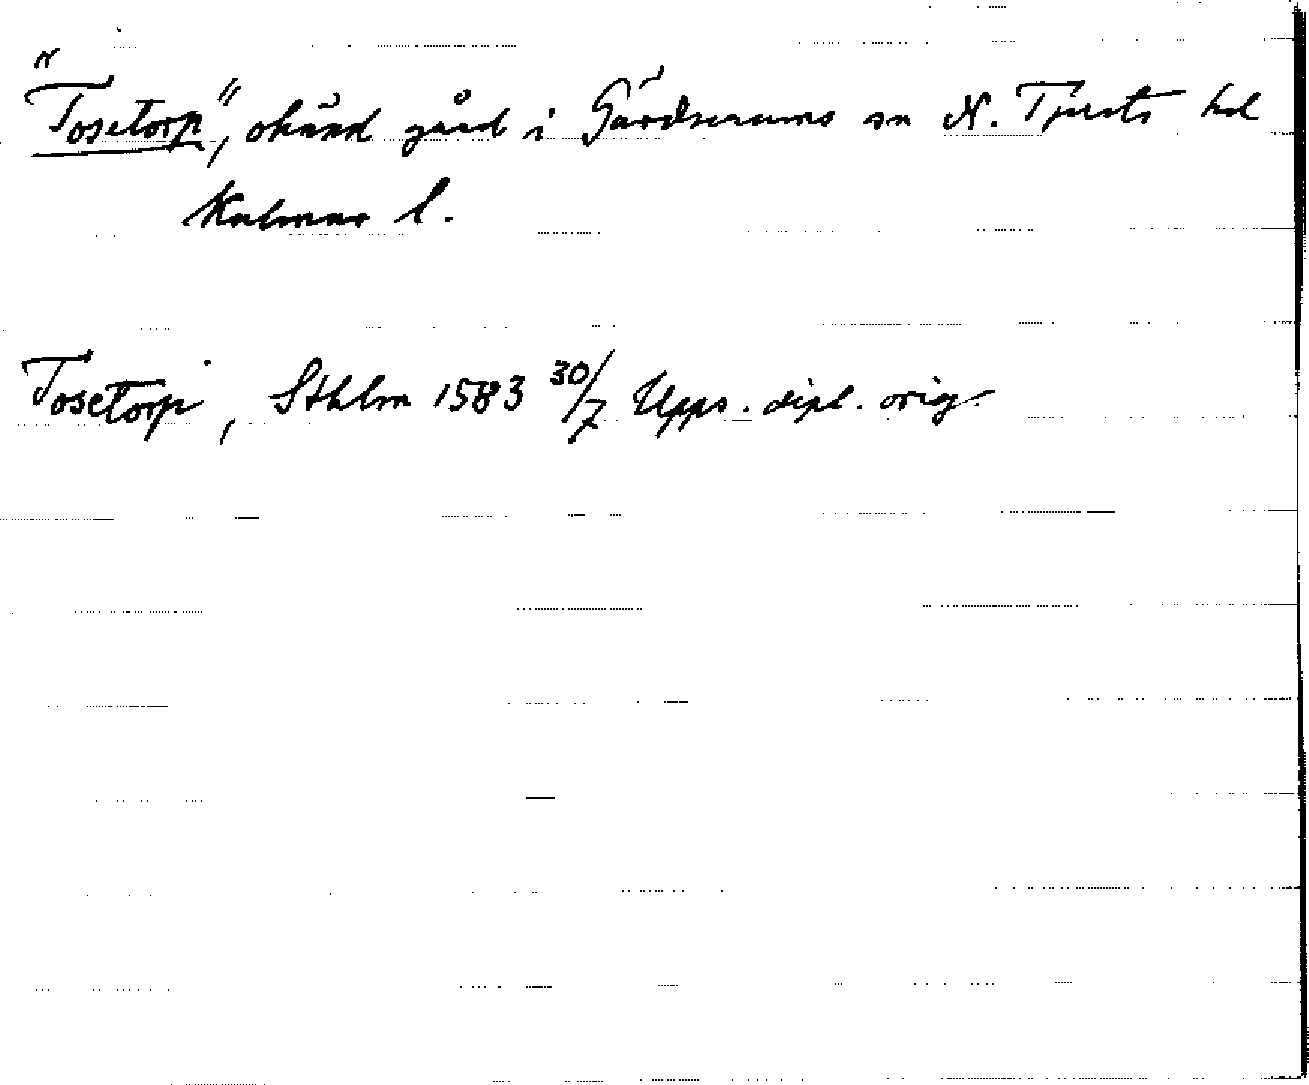 "Tosetorp", okänd gård i Gärdserums sn N. Tjusts hd
Kalmar l.
Tosetorp, Sthlm 1583 30/7 Upps. dipl. orig.